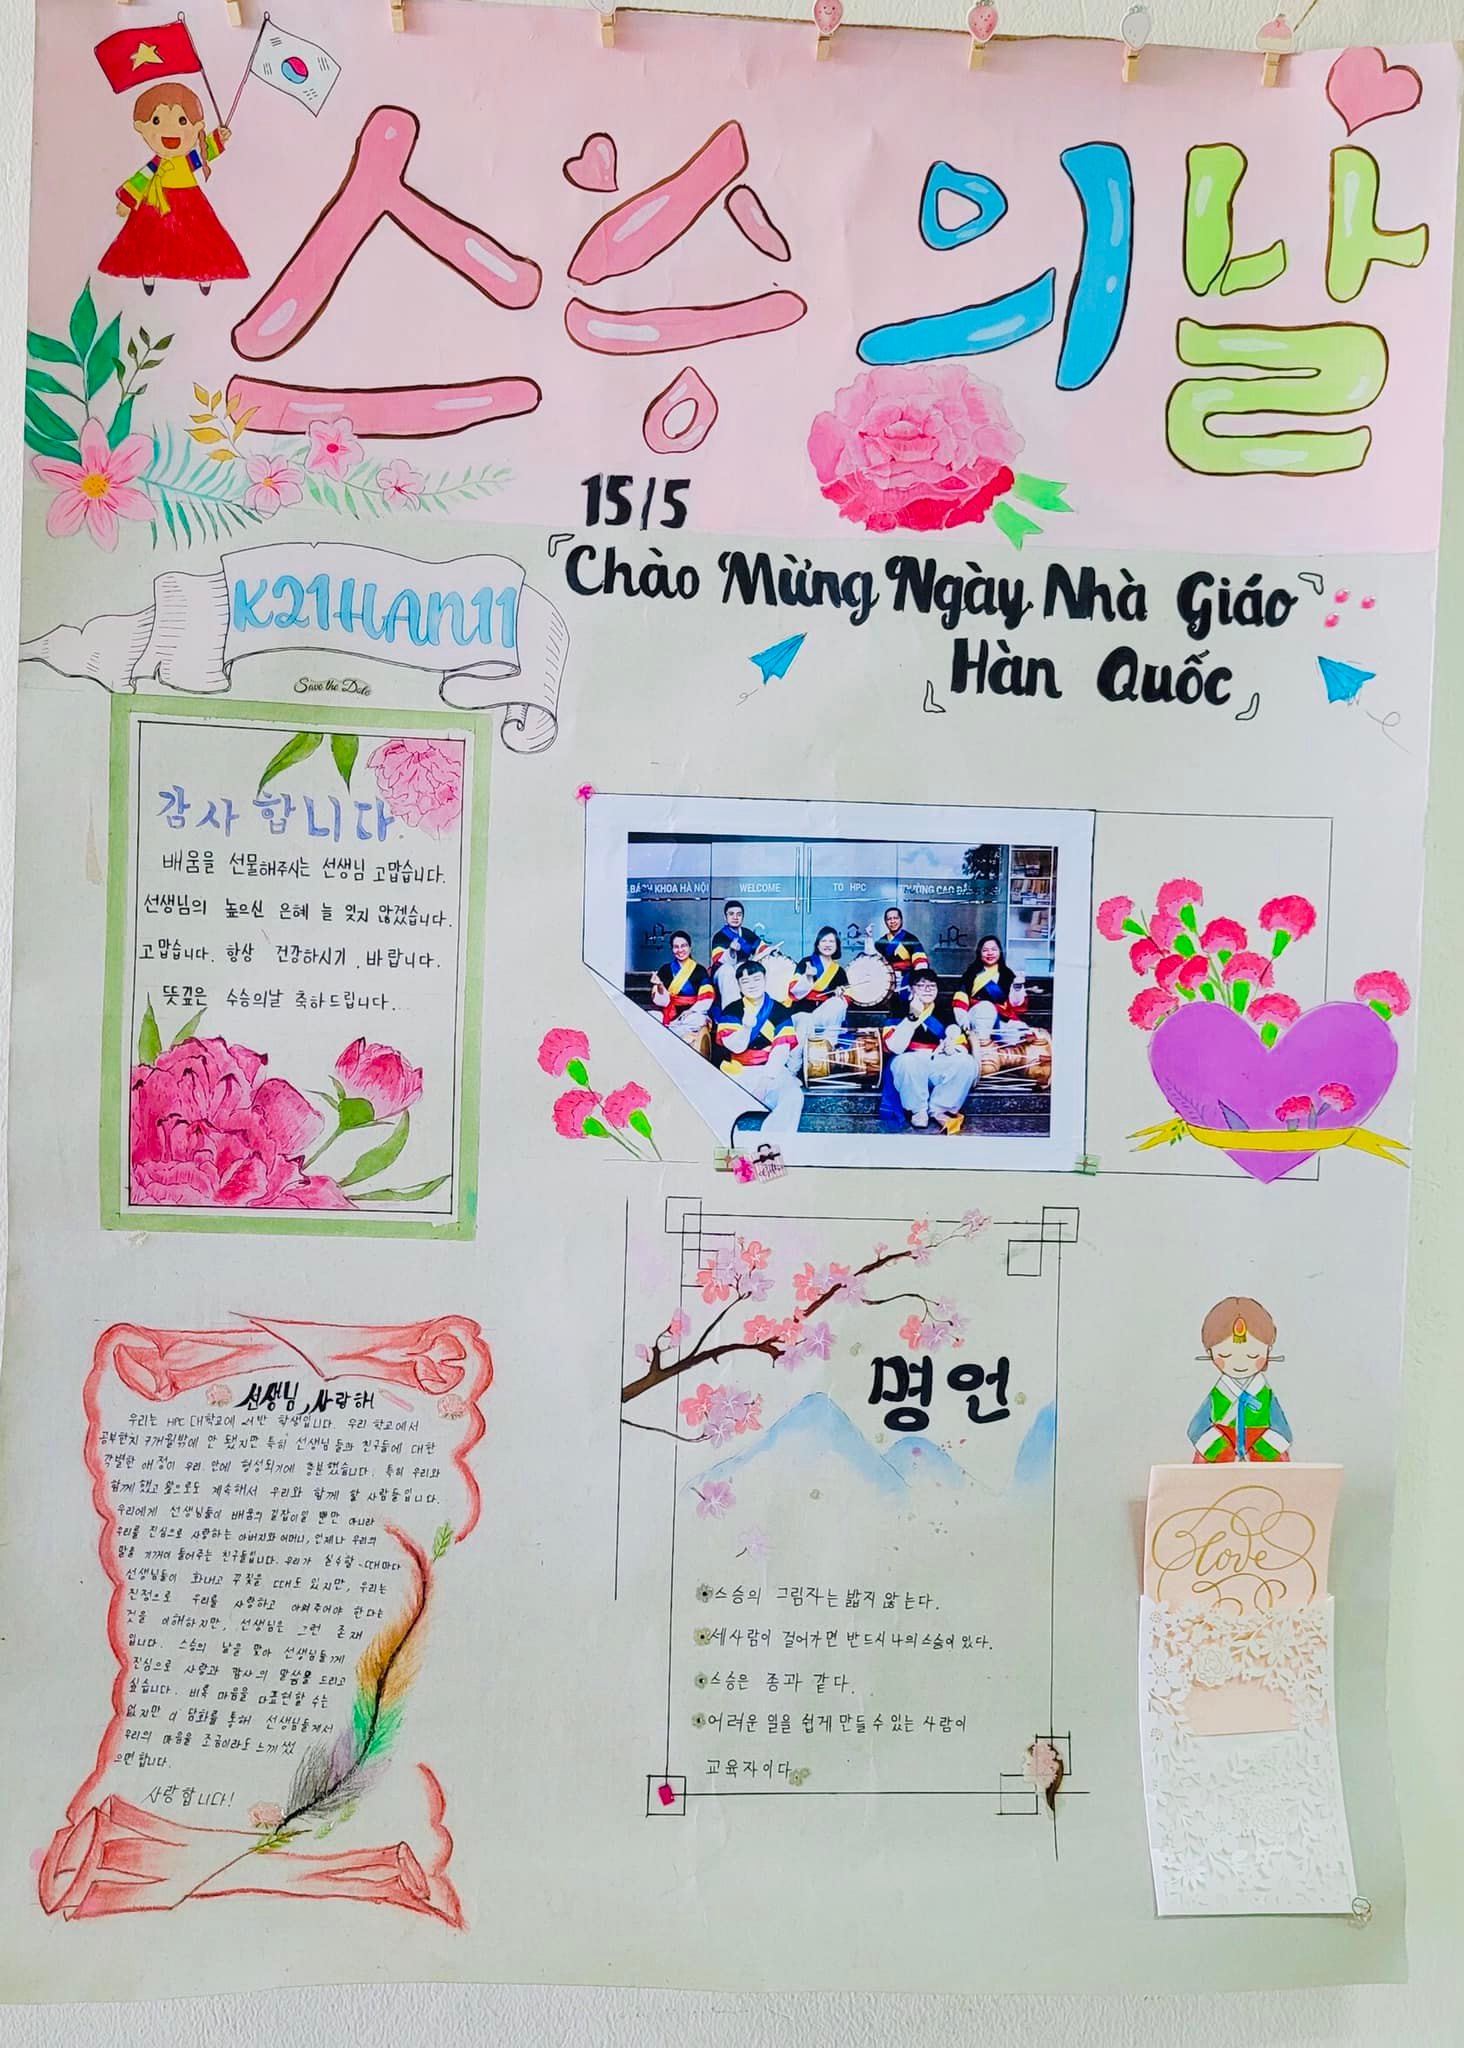 스승의 날
15/5
『Chào Mừng Ngày Nhà Giáo
Hàn Quốc』
K21HAN11
Save the Date
감사합니다.
배움을 선물해주시는 선생님 고맙습니다.
선생님의 높으신 은혜 늘 잊지 않겠습니다.
고맙습니다. 항상 건강하시기 바랍니다.
뜻깊은 수승의날 축하드립니다.
BÁCH KHOA HÀ NỘI WELCOME TO HPC TRƯỜNG CAO ĐẲNG
선생님, 사랑해!
우리는 HPC 대학교에 학생입니다. 우리 학교에서
공부한지 7개월밖에 안 됐지만 특히 선생님 들과 친구들에 대한
각별한 애정이 우리 안에 형성되기에 충분했습니다. 특히 우리와
함께 했고 앞으로도 계속해서 우리와 함께 할 사람들입니다.
우리에게 선생님들이 배움의 길잡이일 뿐만 아니라
우리를 진심으로 사랑하는 아버지와 어머니, 언제나 우리의
말을 기꺼이 들어주는 친구들입니다. 우리가 실수할 때마다
선생님들이 화내고 꾸짖을 때도 있지만, 우리는
진정으로 우리를 사랑하고 아껴주어야 한다는
것을 이해하지만, 선생님은 그런 존재
입니다. 스승의 날을 맞아 선생님들께
진심으로 사랑과 감사의 말씀을 드리고
싶습니다. 비록 마음을 다표현할 수는
없지만 이 담화를 통해 선생님들께서
우리의 마음을 조금이라도 느끼셨
으면 합니다.
사랑합니다!
명언
스승의 그림자는 밟지 않는다.
세사람이 걸어가면 반드시 나의 스승이 있다.
스승은 종과 같다.
어려운 일을 쉽게 만들 수 있는 사람이
교육자이다.
Love